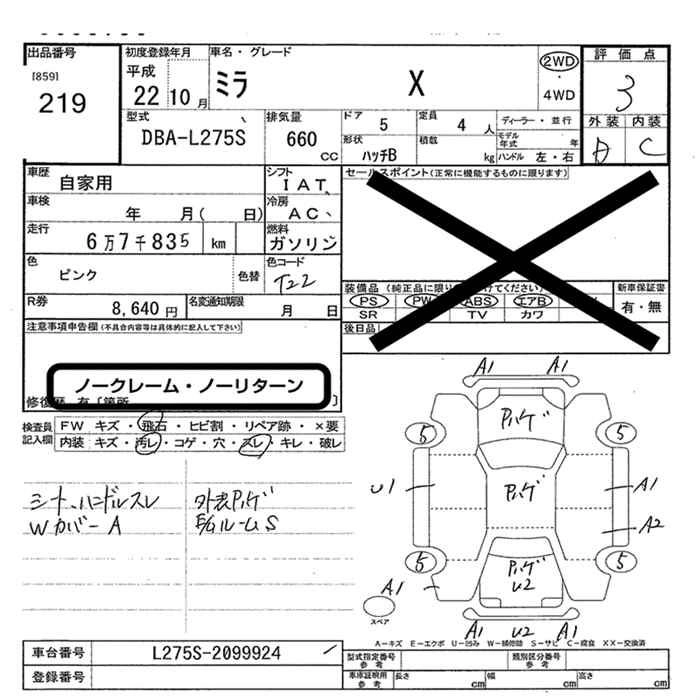 出品番号
[859]
219
初度登録年月
平成
22 10 月
車名・グレード
ミラ X
2WD
・
4WD
評価点
3
外装 内装
A C
型式
DBA-L275S
排気量
660
CC
ドア
5
定員
4 人
形状
ハッチB
積載
kg
ディーラー・並行
モデル年式 年
ハンドル 左・右
車歴
自家用
シフト
IAT
車検
年 月( 日)
冷房
AC
走行
6万7千835 km
燃料
ガソリン
色
ピンク
色替
色コード
T22
R券
8,640 円
名変通知期限
月 日
セールスポイント(正常に機能するものに限ります)
装備品 (純正品に限り けてください)
PS PW ABS エアB
SR TV カワ
新車保証書
有・無
後日品
注意事項申告欄 (不具合内容等は具体的に記入して下さい)
ノークレーム・ノーリターン
修復歴 有 [箇所 ]
検査員記入欄
FW キズ・飛石・ヒビ割・リペア跡・×要
内装 キズ・汚レ・コゲ・穴・スレ・キレ・破レ
シート、ハンドルスレ
Wカバー A
外装Pハゲ
E/GルームS
A1 A1
Pハゲ
5 5
U1
Pハゲ
A1
A2
5 5
Pハゲ
U2
A1
スペア
A1 U2 A1
A-キズ E-エクボ U-凹み W-補修跡 S-サビ C-腐食 XX-交換済
車台番号
L275S-2099924
登録番号
型式指定番号
参考
類別区分番号
参考
車庫証明用
参考
長さ cm
幅 cm
高さ cm